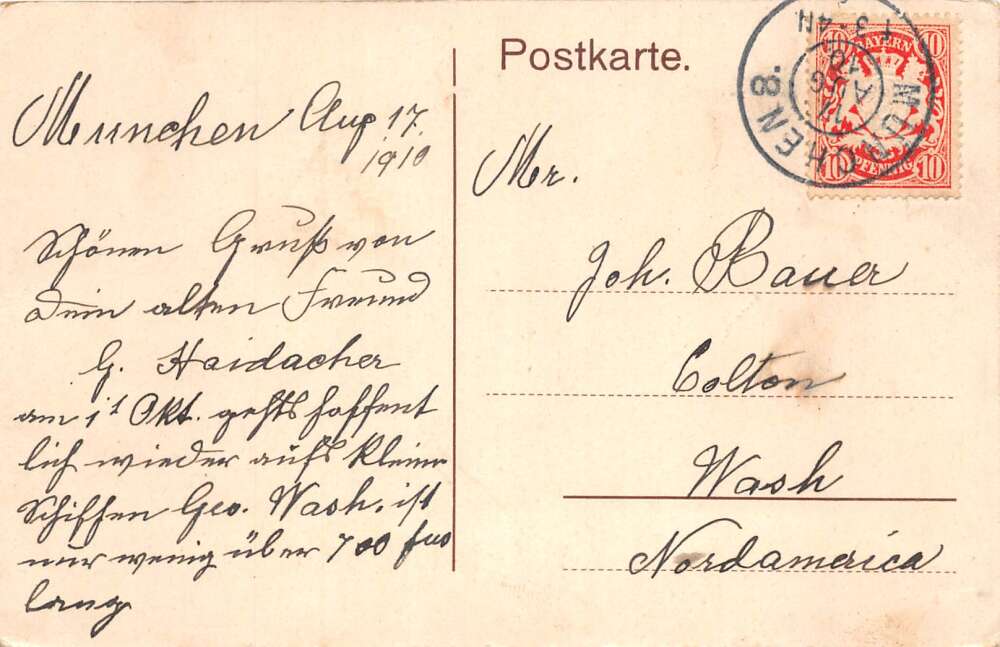 Postkarte.
BAYERN
10 10
10 PFENNIG 10
MÜNCHEN 8.
17. AUG
10
3-4 N
München Aug 17.
1910
Schönen Gruß von
Dein alten Freund
G. Haidacher
am 1t Okt. gehts hoffent
lich wieder aufs kleine
Schiffen Geo. Wash. ist
nur wenig über 700 fus
lang
Mr.
Joh. Bauer
Colton
Wash
Nordamerica